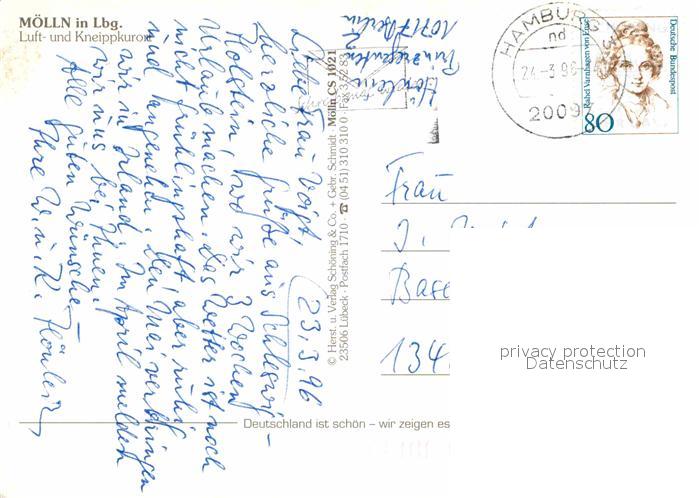 MÖLLN in Lbg.
Luft- und Kneippkurort
23.3.96
Liebe Frau Voigt,
herzliche Grüße aus Schleswig-
Holstein, wo wir 3 Wochen
Urlaub machen. Das Wetter ist noch
nicht frühlingshaft, aber ruhig
und angenehm. Den Mai verbringen
wir in Irland. Im April melden
wir uns bei Ihnen.
Alle guten Wünsche
Ihre W. u. K.
10717 Berlin
© Herst. u. Verlag Schöning & Co. + Gebr. Schmidt · Mölln CS 1021
23506 Lübeck · Postfach 1710 · ☎ (04 51) 310 310 0 · Fax 3 52 83
HAMBURG
nd
24.-3.96
2009
Deutsche Bundespost
Rahel Varnhagen von Ense
80
Frau
J.
Base
134
privacy protection
Datenschutz
Deutschland ist schön – wir zeigen es